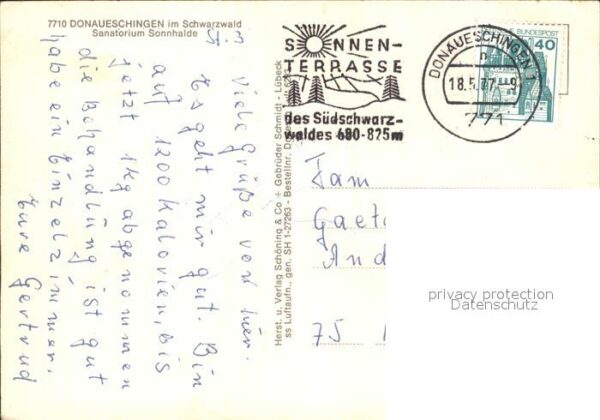 7710 DONAUESCHINGEN im Schwarzwald
Sanatorium Sonnhalde
Viele Grüße von hier.
Es geht mir gut. Bin
auf 1200 Kalorien, bis
jetzt 1kg abgenommen
die Behandlung ist gut
habe ein Einzelzimmer.
Eure Gertrud
Herst. u. Verlag Schöning & Co + Gebrüder Schmidt - Lübeck
ss Luftaufn., gen. SH 1-27263 - Bestellnr.
SONNEN-
TERRASSE
des Südschwarz-
waldes 680-825m
DONAUESCHINGEN 1
18.5.77-9
771
DEUTSCHE BUNDESPOST
40
Fam
Gaet
And
75
privacy protection
Datenschutz